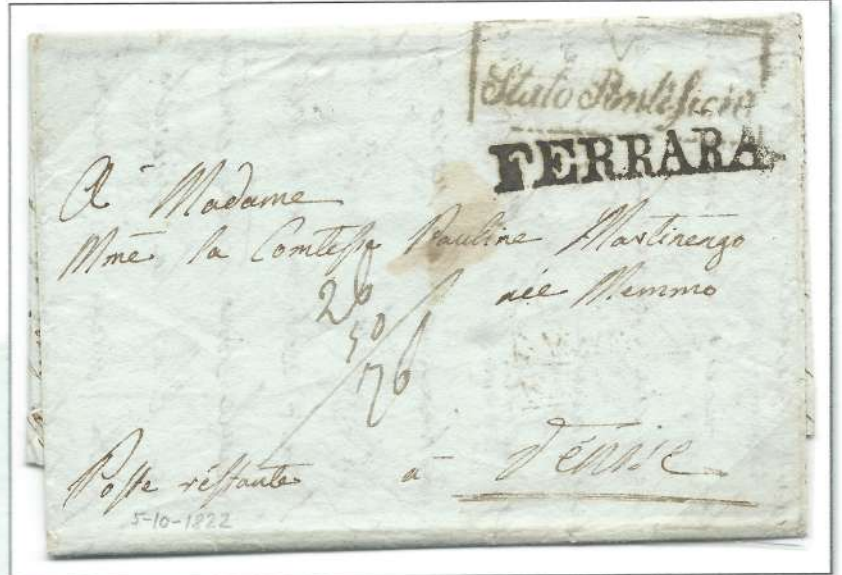 Stato Pontificio
FERRARA
A Madame
Mme la Comtesse Pauline Martinengo
née Memmo
26
50
76
Poste restante à Vénise
5-10-1822